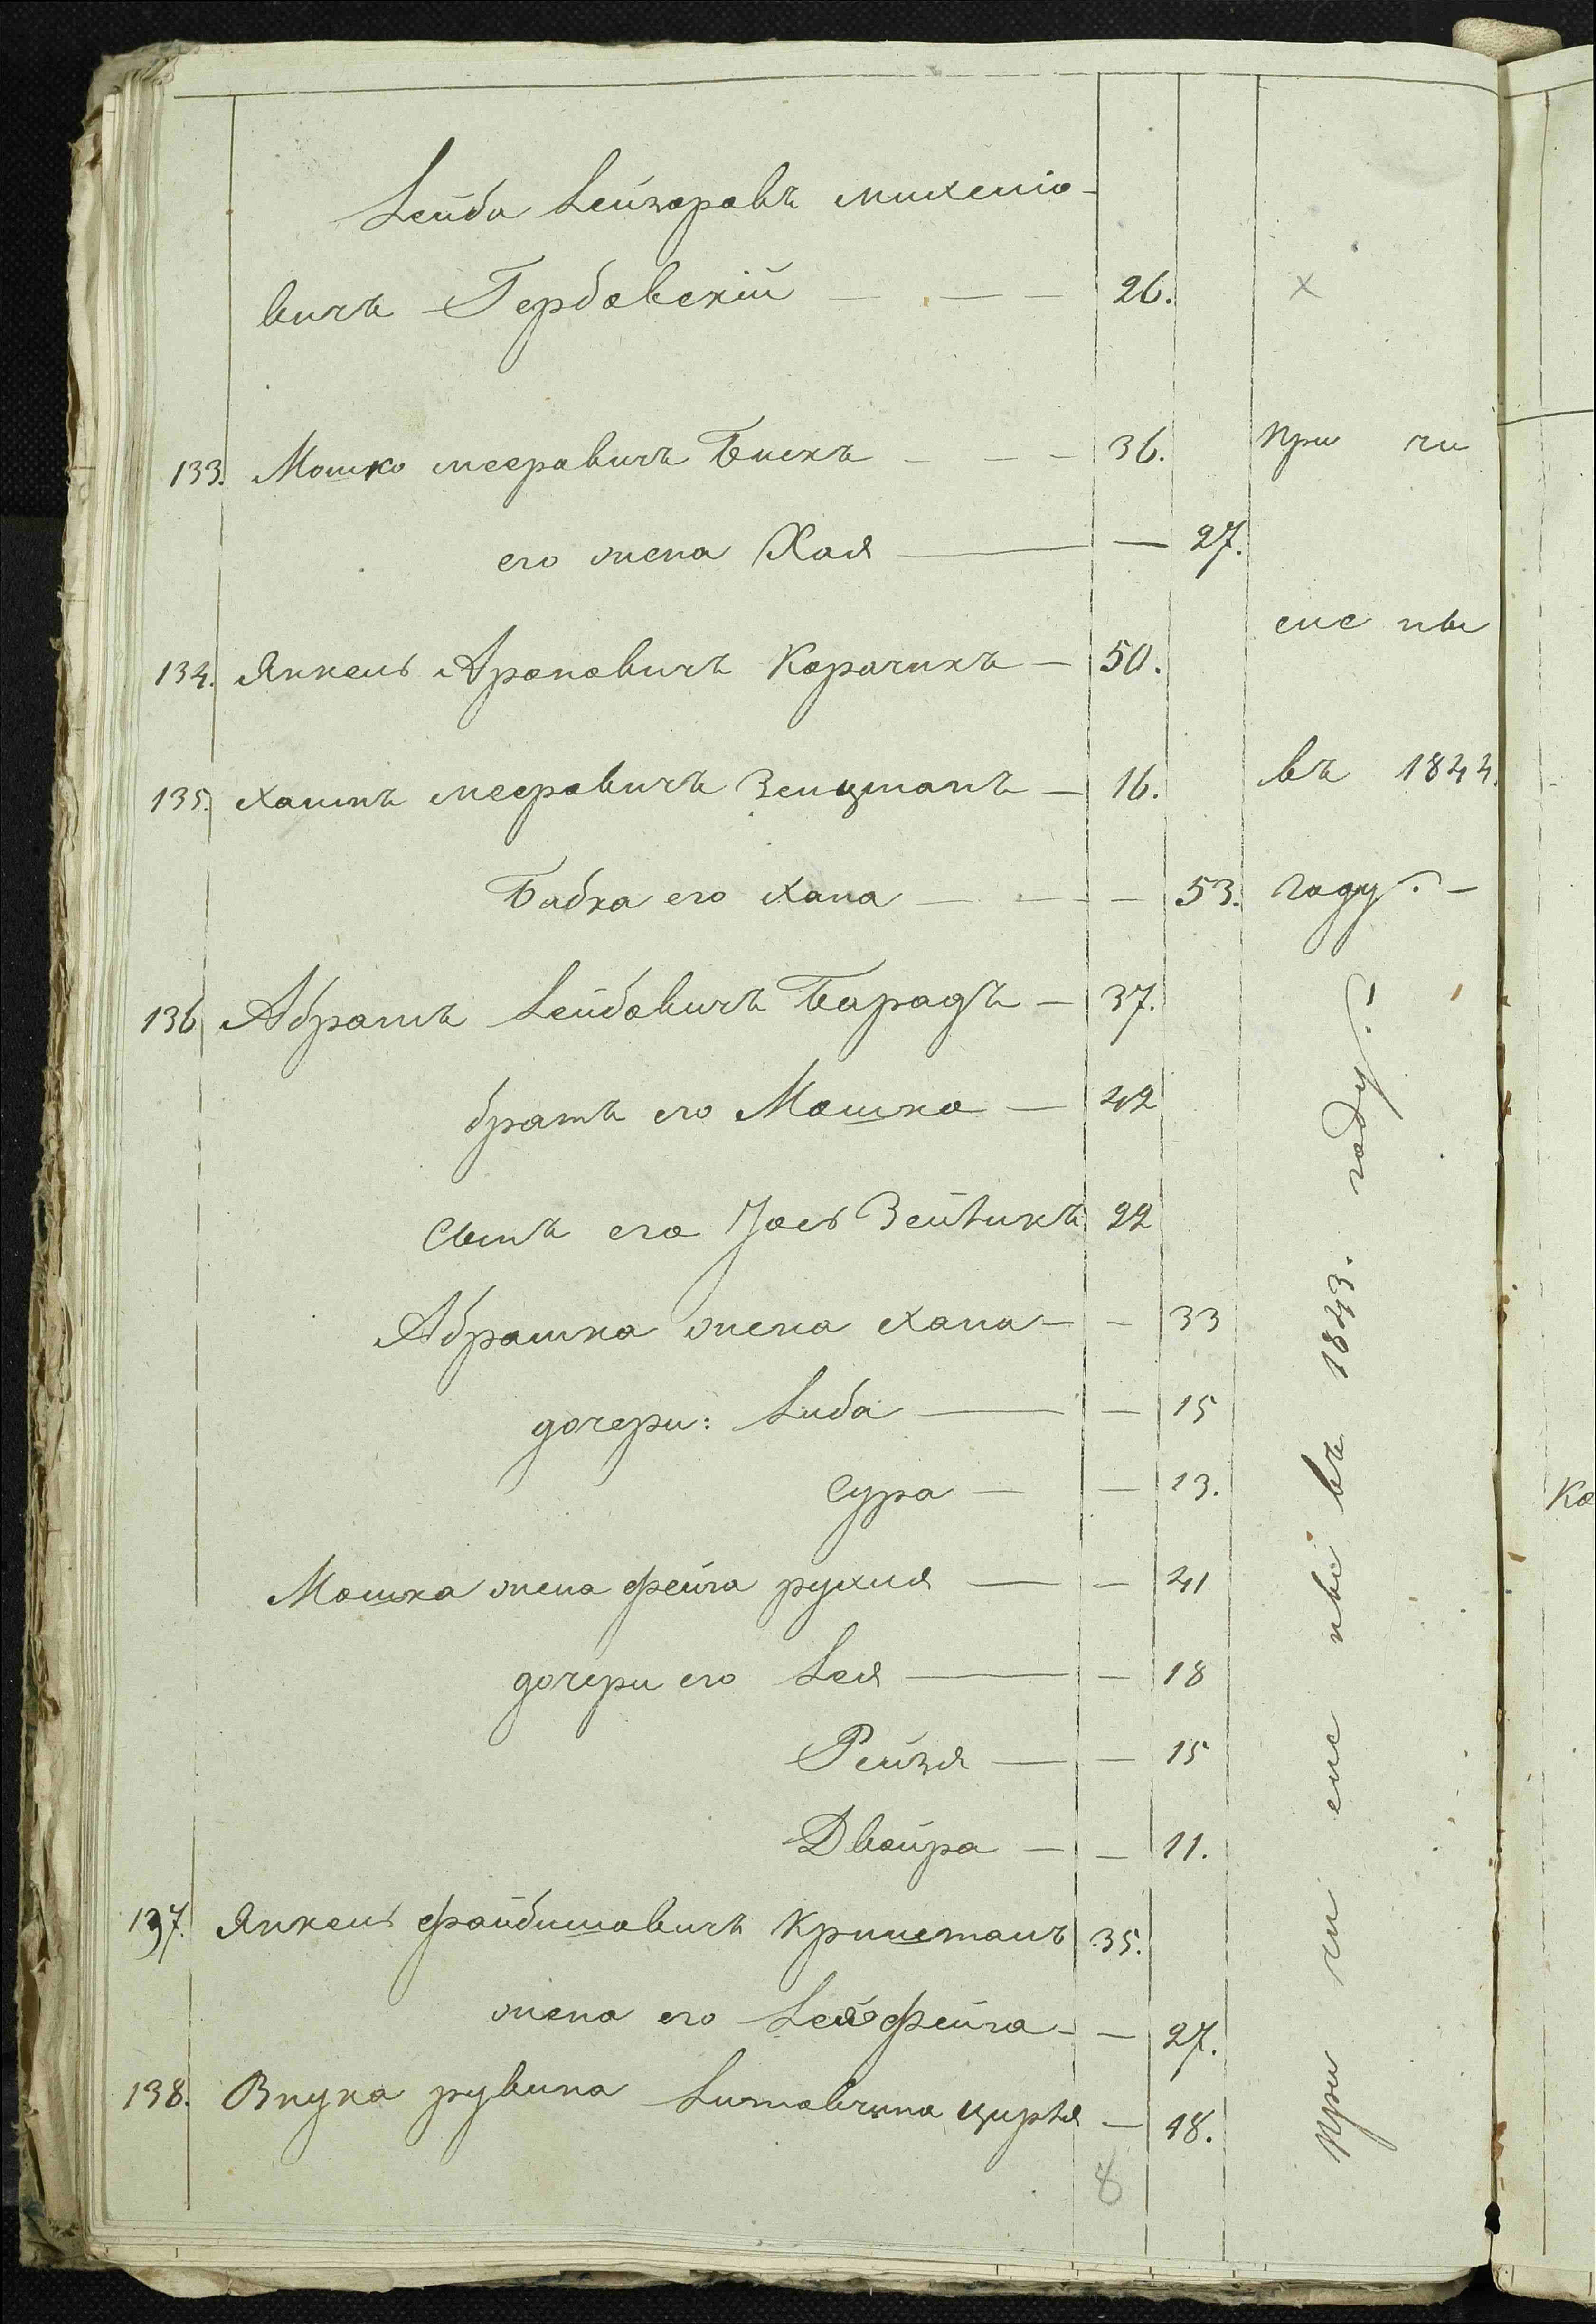 Лейба Лейзоровъ михеліо-
вичъ Гербовскій — — — 26. х
133. Мошко мееровичъ Бискъ — — — 36. при чи
его жена Хая — — 27.
сле ны
134. Янкель Ароновичъ Корочикъ — 50.
135. хаимъ мееровичъ Зельцманъ — 16. въ 1844.
Бабка его хана — — — 53. году. —
136 Абрамъ Лейбовичъ Барадъ — 37.
братъ его Мошко — 42
сынъ его Иось Зейликъ 22
Абрамка жена хана — — 33
дочери: Либа — — 15
сура — — 13.
Мошка жена фейга рухля — — 41
дочери его Лея — — 18
Рейзя — — 15
Двойра — — 11.
137. Янкель файбишовичъ Криштанъ 35.
жена его Лея фейга — — 27.
138. Внука рувина цирля — 18.
8
при чи сле ны въ 1843. году.